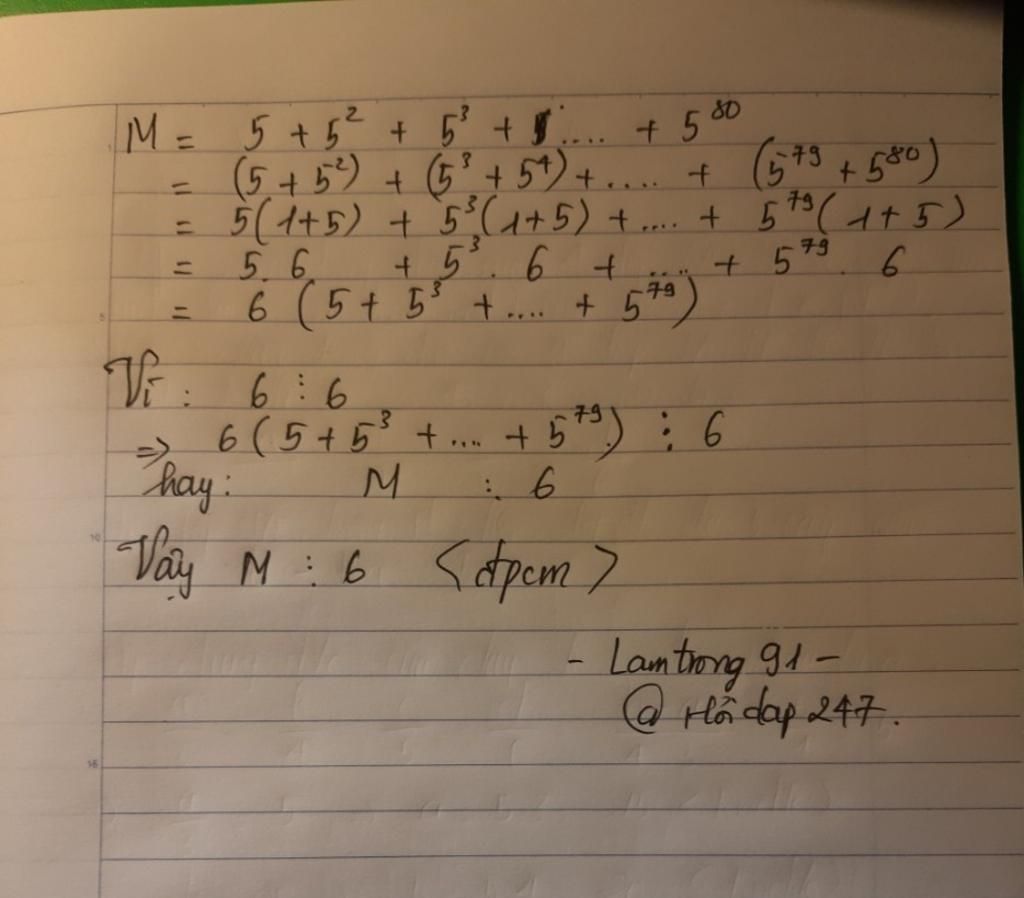 M = 5 + 5² + 5³ + .... + 5⁸⁰
= (5 + 5²) + (5³ + 5⁴) + .... + (5⁷⁹ + 5⁸⁰)
= 5(1+5) + 5³(1+5) + .... + 5⁷⁹(1+5)
= 5.6 + 5³.6 + .... + 5⁷⁹.6
= 6 (5 + 5³ + .... + 5⁷⁹)
Vì : 6 ⋮ 6
=> 6 (5 + 5³ + .... + 5⁷⁹) ⋮ 6
hay : M ⋮ 6
Vậy M ⋮ 6 <đpcm>
- Lamtrong 91 -
@ Hỏi dap 247.